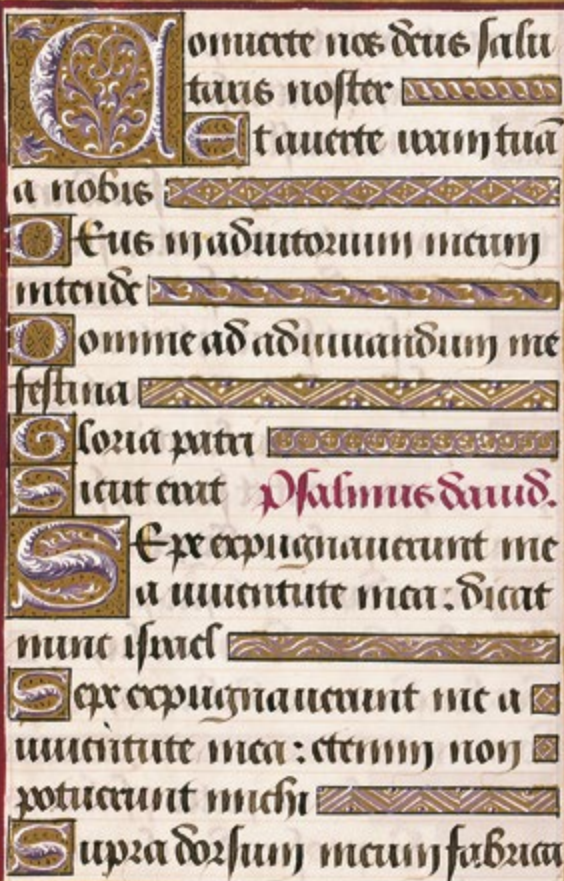 Conuerte nos deus salu
taris noster
Et auerte iram tuā
a nobis
Deus in adiutorium meum
intende
Domine ad adiuuandum me
festina
Gloria patri
Sicut erat Psalmus dauid.
Sepe expugnauerunt me
a iuuentute mea: dicat
nunc israel
Sepe expugnauerunt me a
iuuentute mea: etenim non
potuerunt michi
Supra dorsum meum fabrica